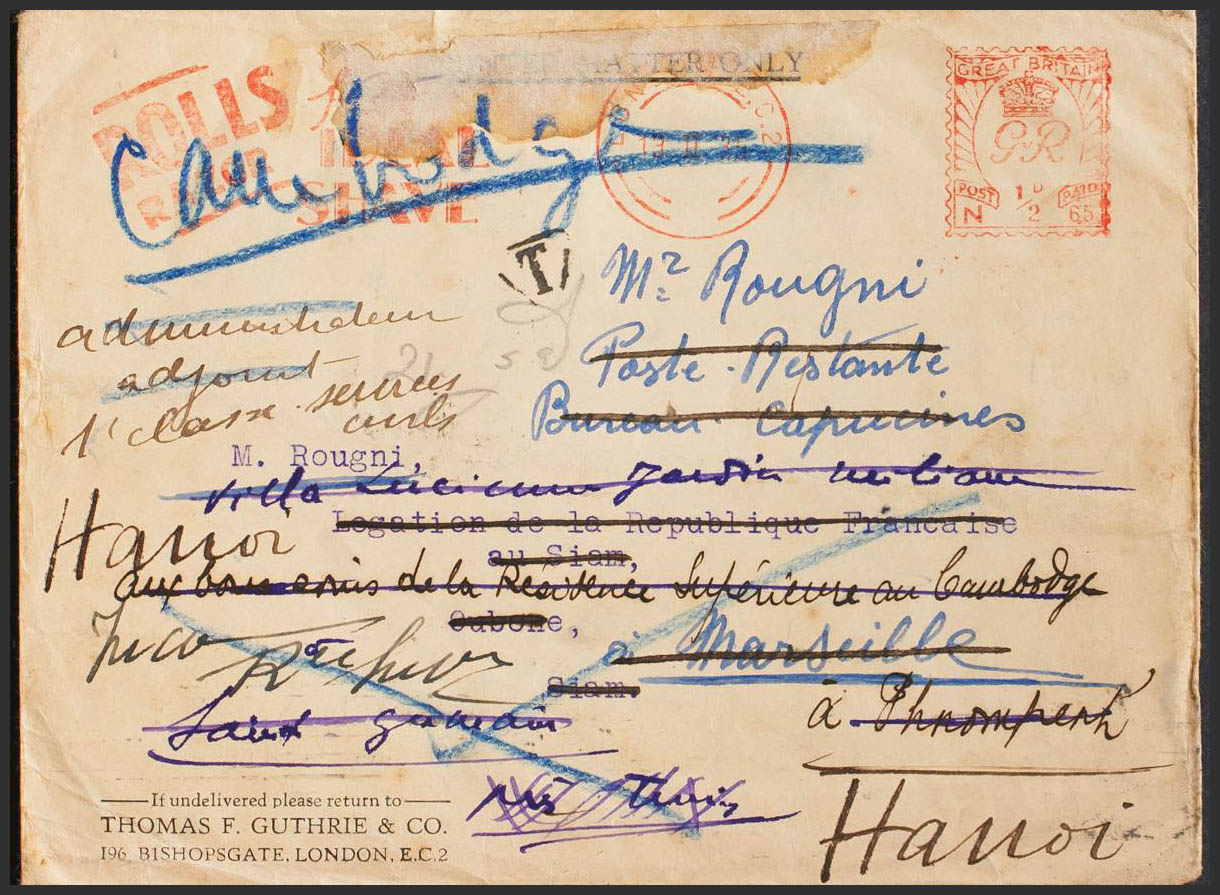 ROLLS
RAZOR
IDEAL
SHAVE
MATTER ONLY
E.C.2
GREAT BRITAIN
GR
POST 1/2 D PAID
N 65
Cambodge
T
Mr Rougni
Poste-Restante
Bureau Capucines
administrateur
adjoint
1e classe services
civils
21
M. Rougni,
Villa Jardin
Legation de la Republique Francaise
au Siam,
Hanoi
aux bons soins de la Résidence Supérieure au Cambodge
Oubone,
à Marseille
Siam.
à Phnompenh
Saint Germain
Hanoi
If undelivered please return to
THOMAS F. GUTHRIE & CO.
196, BISHOPSGATE, LONDON, E.C.2